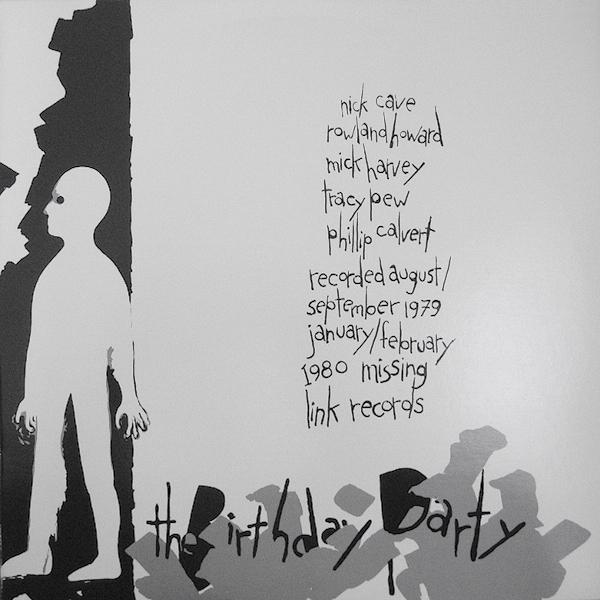 nick cave
rowland howard
mick harvey
tracy pew
phillip calvert
recorded august/
september 1979
january/february
1980 missing
link records
the Birthday Party